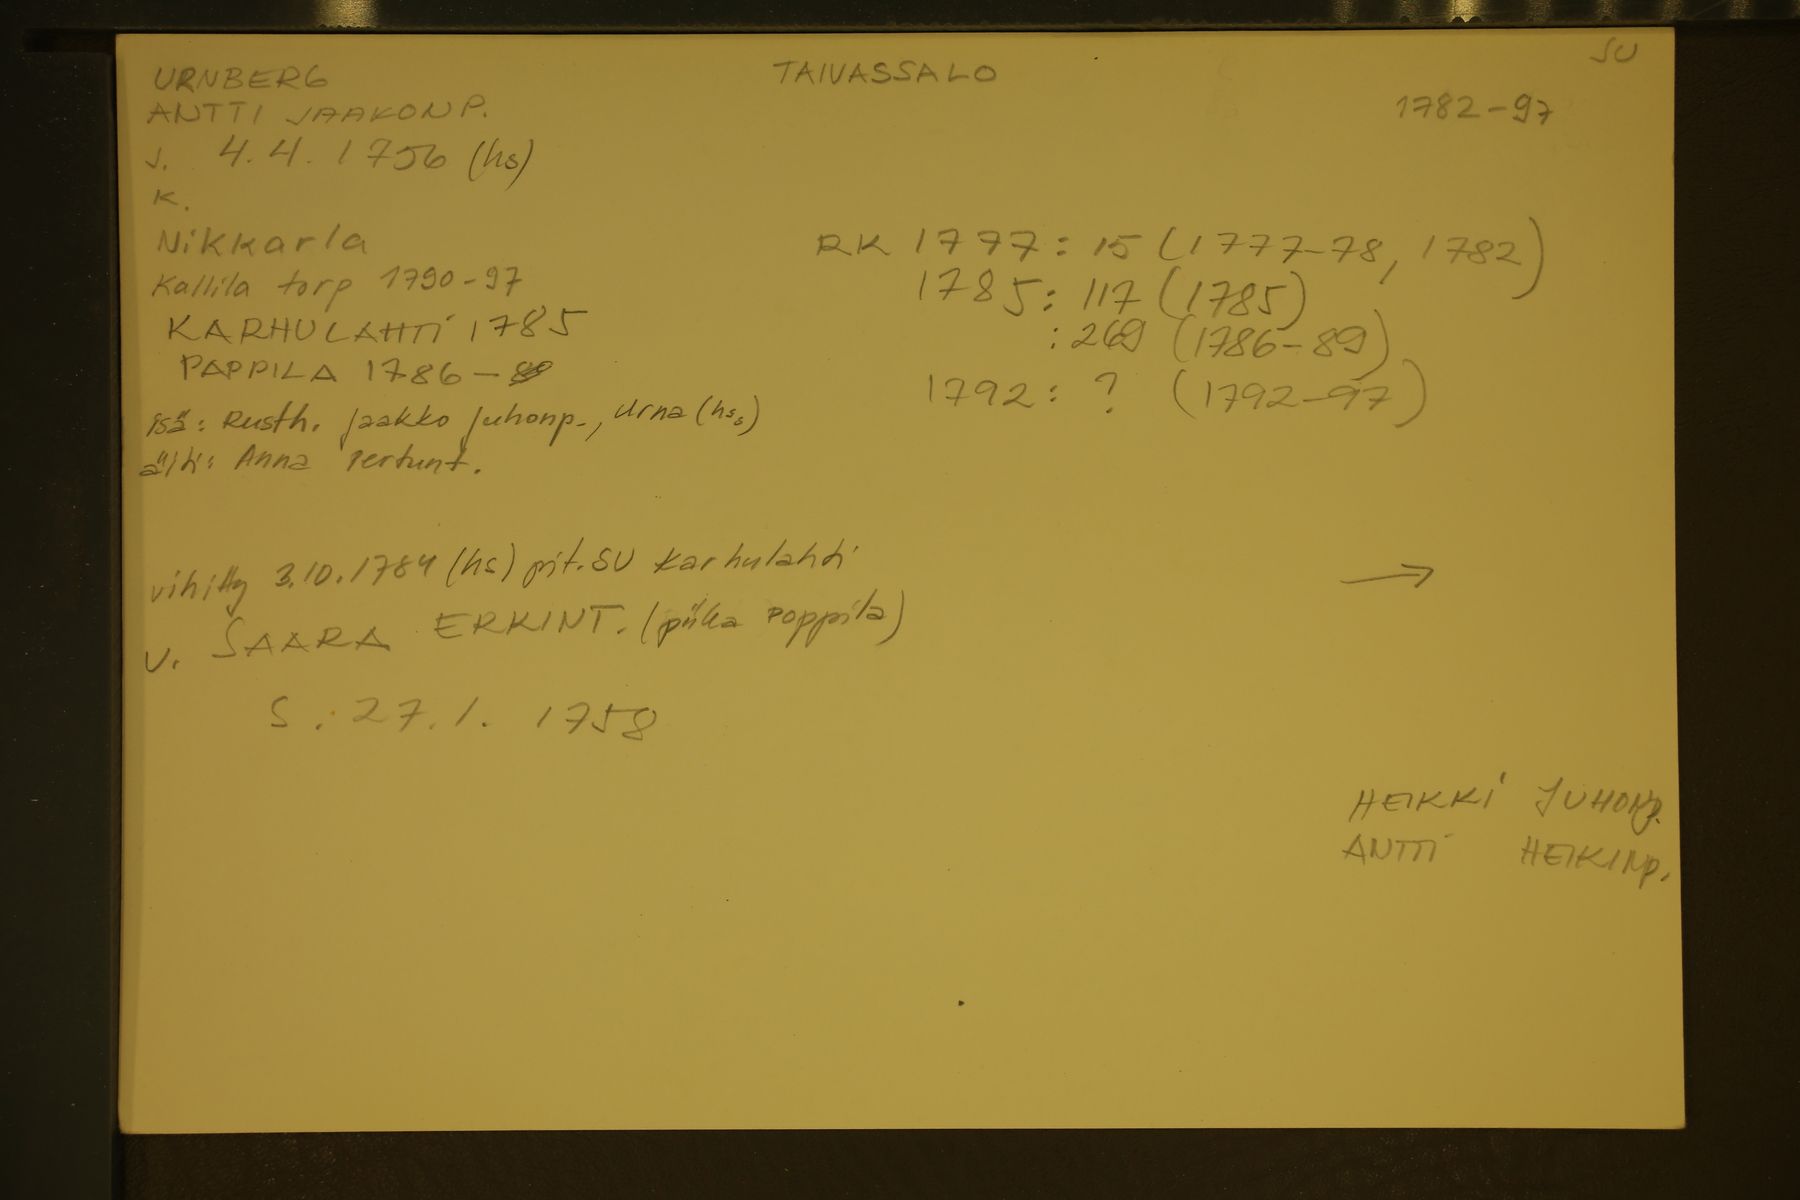 SU
URNBERG TAIVASSALO
ANTTI JAAKONP. 1782-97
s. 4.4.1756 (hs)
K.
Nikkarla RK 1777: 15 (1777-78, 1782)
Kallila torp 1790-97 1785: 117 (1785)
KARHULAHTI 1785 : 269 (1786-89)
PAPPILA 1786-89 1792: ? (1792-97)
isä: Rusth. Jaakko Juhonp., Urna (hs.)
äiti: Anna Pertunt.
vihitty 3.10.1784 (hs) pit.SU Karhulahti →
V. SAARA ERKINT. (piika Pappila)
S. 27.1. 1758
HEIKKI JUHONP.
ANTTI HEIKINP.